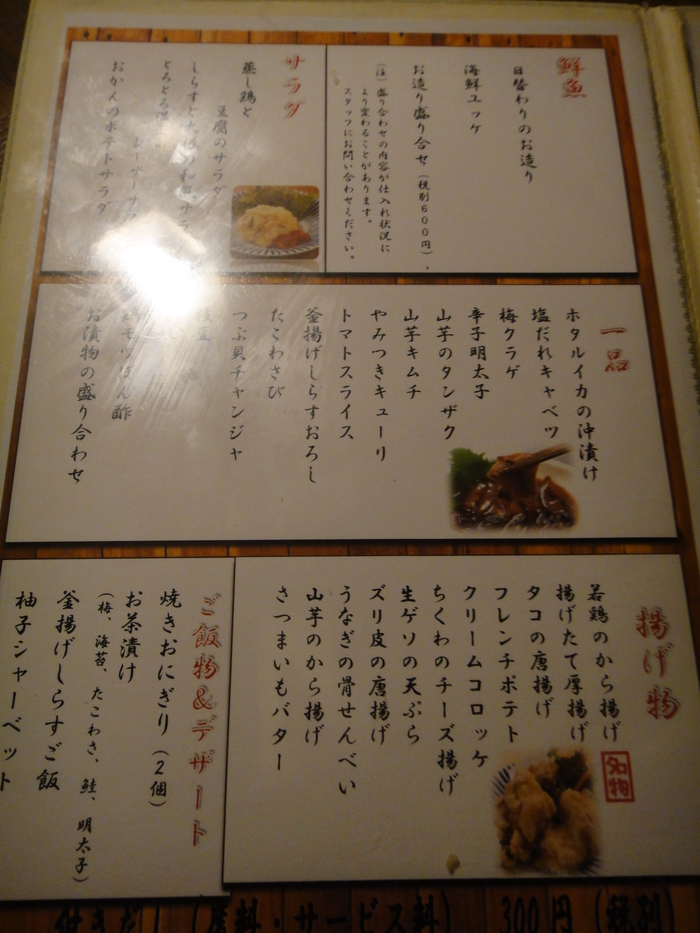 鮮魚
日替わりのお造り
海鮮ユッケ
お造り盛り合せ（税別600円）
（注）盛り合わせの内容が仕入れ状況に
より変わることがあります。
スタッフにお問い合わせください。
サラダ
蒸し鶏と
豆腐のサラダ
しらすと大根の和風サラ
とろとろ
シーザーサ
おかんのポテトサラダ
一品
ホタルイカの沖漬け
塩だれキャベツ
梅クラゲ
辛子明太子
山芋のタンザク
山芋キムチ
やみつきキューリ
トマトスライス
釜揚げしらすおろし
たこわさび
つぶ貝チャンジャ
枝豆
モツぽん酢
お漬物の盛り合わせ
揚げ物
若鶏のから揚げ
名物
揚げたて厚揚げ
タコの唐揚げ
フレンチポテト
クリームコロッケ
ちくわのチーズ揚げ
生ゲソの天ぷら
ズリ皮の唐揚げ
うなぎの骨せんべい
山芋のから揚げ
さつまいもバター
ご飯物&デザート
焼きおにぎり（2個）
お茶漬け
（梅、海苔、たこわさ、鮭、明太子）
釜揚げしらすご飯
柚子シャーベット
付きだし（席料・サービス料） 300円（税別）